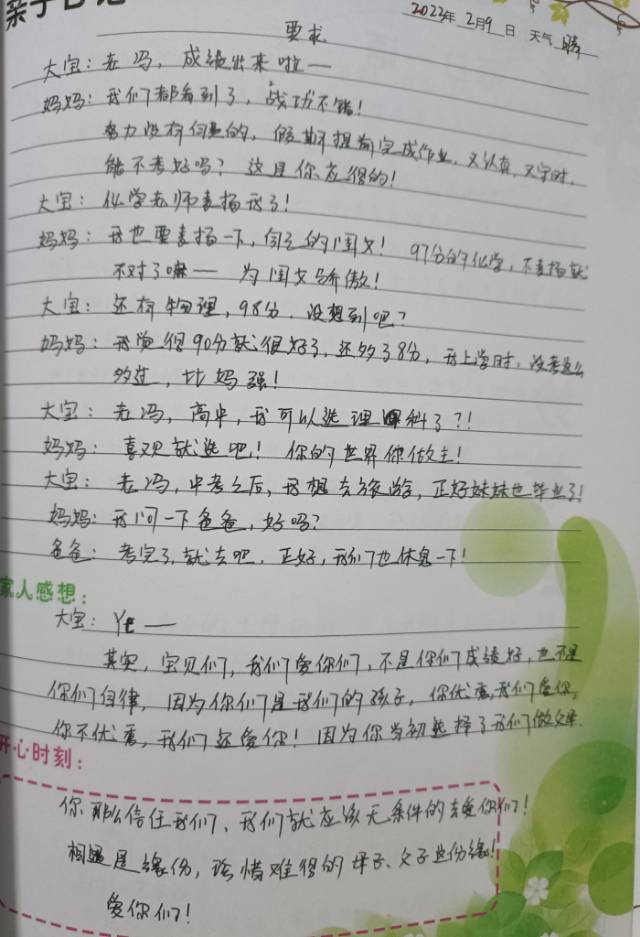 亲子日记
2022年 2月9日 天气 晴
要求
大宝：老冯，成绩出来啦——
妈妈：我们都看到了，战功不错！
努力没有白费的，假期提前完成作业，又认真，又守时，
能不考好吗？这是你应得的！
大宝：化学老师表扬我了！
妈妈：我也要表扬一下，自己的闺女！97分的化学，不表扬就
不对了嘛—— 为闺女骄傲！
大宝：还有物理，98分，没想到吧？
妈妈：我觉得90分就很好了，还多了8分，我上学时，没考这么
多过，比妈强！
大宝：老冯，高中，我可以选理科了？！
妈妈：喜欢就选吧！你的世界你做主！
大宝：老冯，中考之后，我想去旅游，正好妹妹也毕业了！
妈妈：我问一下爸爸，好吗？
爸爸：考完了，就去吧，正好，我们也休息一下！
家人感想：
大宝：Ye——
其实，宝贝们，我们爱你们，不是你们成绩好，也不是
你们自律，因为你们是我们的孩子，你优秀，我们爱你，
你不优秀，我们还爱你！因为你当初选择了我们做父母.
开心时刻：
你那么信任我们、我们就应该无条件的去爱你们！
相遇是缘份，珍惜难得的母子、父子这份缘！
爱你们！